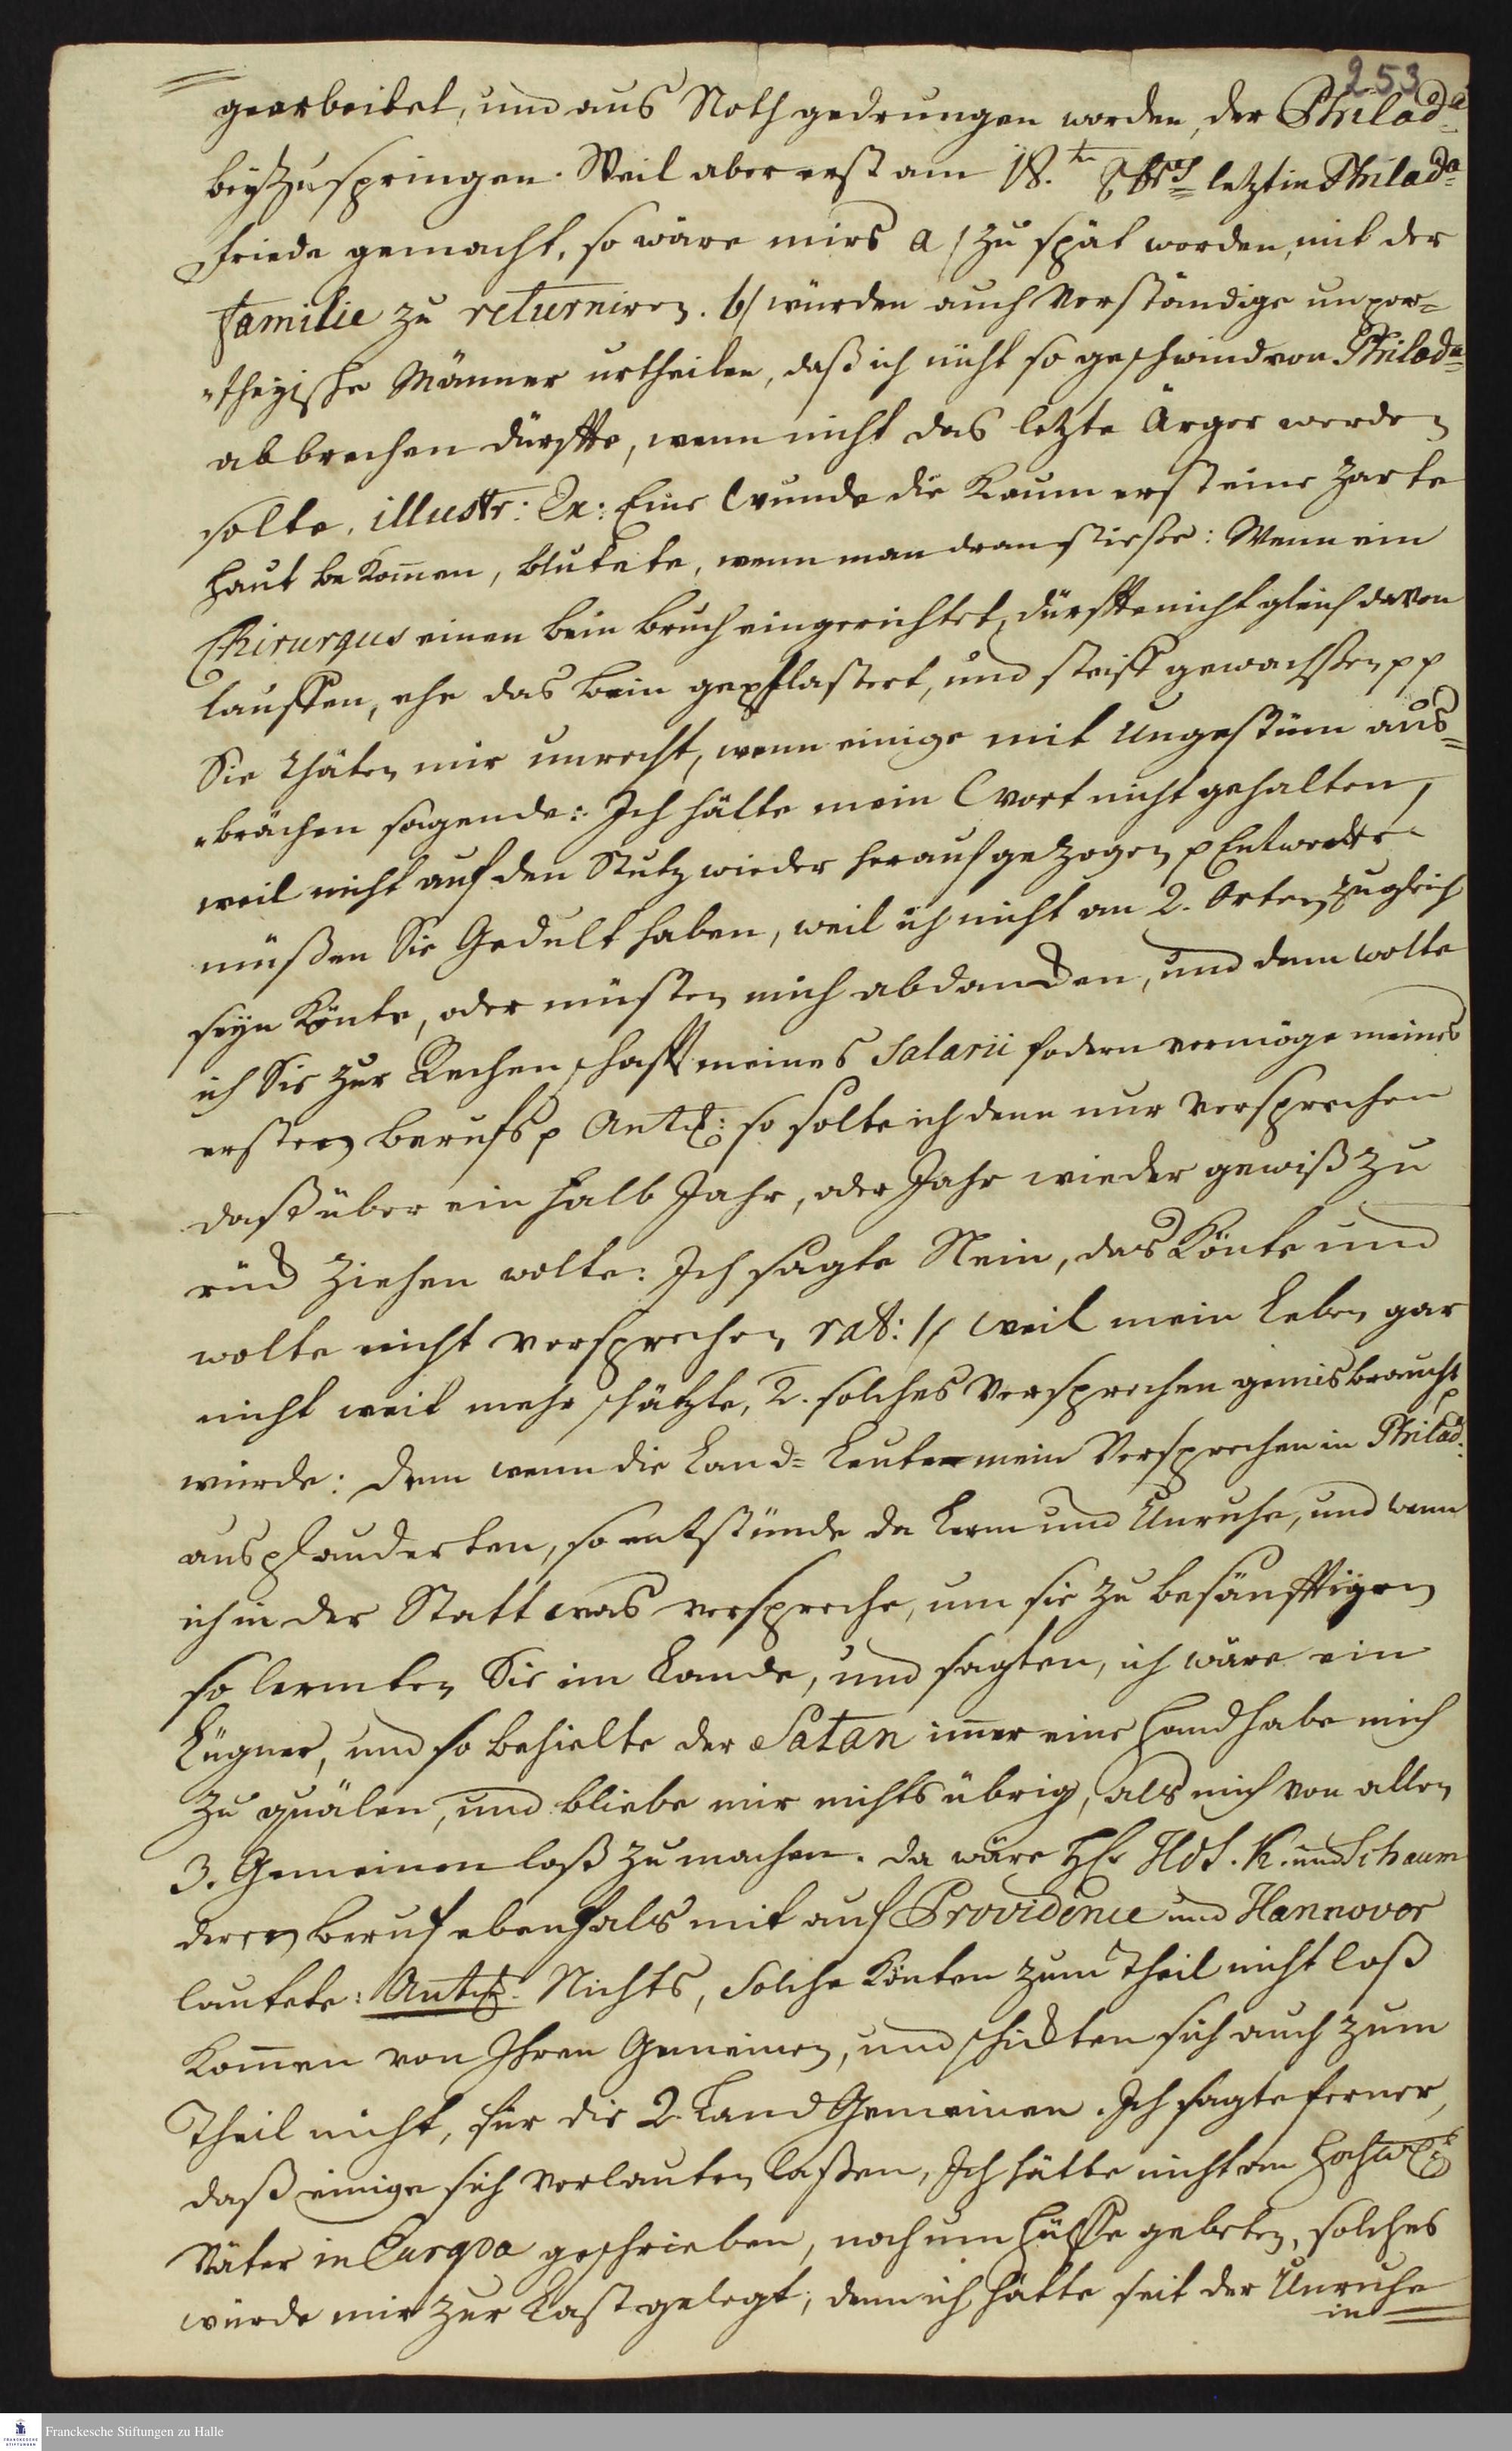 253
gearbeitet, und aus Noth gedrungen worden, der Philada
beyzuspringen. Weil aber erst am 18.ten 8brs letzt in Philada
friede gemacht, so wäre mirs a/ zu spät worden, mit der
familie zu returniren. b/ würden auch Verständige unpar-
"theyische Männer urtheilen, daß ich nicht so geschwind von Philada
abbrechen dürffte, wenn nicht das letzte Ärger werden
solte. illustr: Ex: Eine Wunde die kaum erst eine Zarte
Haut bekomen, blutete, wenn man dran stieße: Wenn ein
Chirurgus einen bein bruch eingerichtet, dürffte nicht gleich davon
lauffen, ehe das bein gepflastert, und steiff gewachssen pp
Sie thäten mir unrecht, wenn einige mit Ungestüm aus-
"brächen sagende: Ich hätte mein Wort nicht gehalten,
weil nicht auf den Stutz wieder herauf gezogen p Entweder
müßen Sie Gedult haben, weil ich nicht an 2. Orten zugleich
seyn könte, oder müsten mich abdancken, und denn wolte
ich Sie zur Rechenschafft meines Salarii fodern vermöge meines
ersten berufs p Antw: so solte ich denn nur versprechen
daß über ein halb Jahr, oder Jahr wieder gewiß zu
rück ziehen wolte: Ich sagte Nein, das könte und
wolte nicht versprechen, rat: 1/ weil mein Leben gar
nicht weit mehr schätzte, 2. solches Versprechen gemisbraucht
würde: denn wenn die Land- Leute mein Versprechen in Philad:
ausplauderten, so entstünde da Lerm und Unruhe, und wenn
ich in der Statt was verspreche, um sie zu besänfftigen
so lermten Sie im Lande, und sagten, ich wäre ein
Lügner, und so behielte der Satan imer eine Handhabe mich
zu quälen, und bliebe mir nichts übrig, als mich von allen
3. Gemeinen loß zu machen. da wäre HE Hds. K. und Schaum
deren beruf ebenfals mit auf Providence und Hannover
lautete: Antw: Nichts, Solche könten zum Theil nicht loß
komen von Ihren Gemeinen, und schickten sich auch zum
Theil nicht, für die 2. Land Gemeinen. Ich sagte ferner,
daß einige sich verlauten laßen, Ich hätte nicht an Hochw:
Väter in Europa geschrieben, noch um Hülffe gebeten, solches
würde mir zur Last gelegt; denn ich hätte seit der Unruhe
in
Franckesche Stiftungen zu Halle